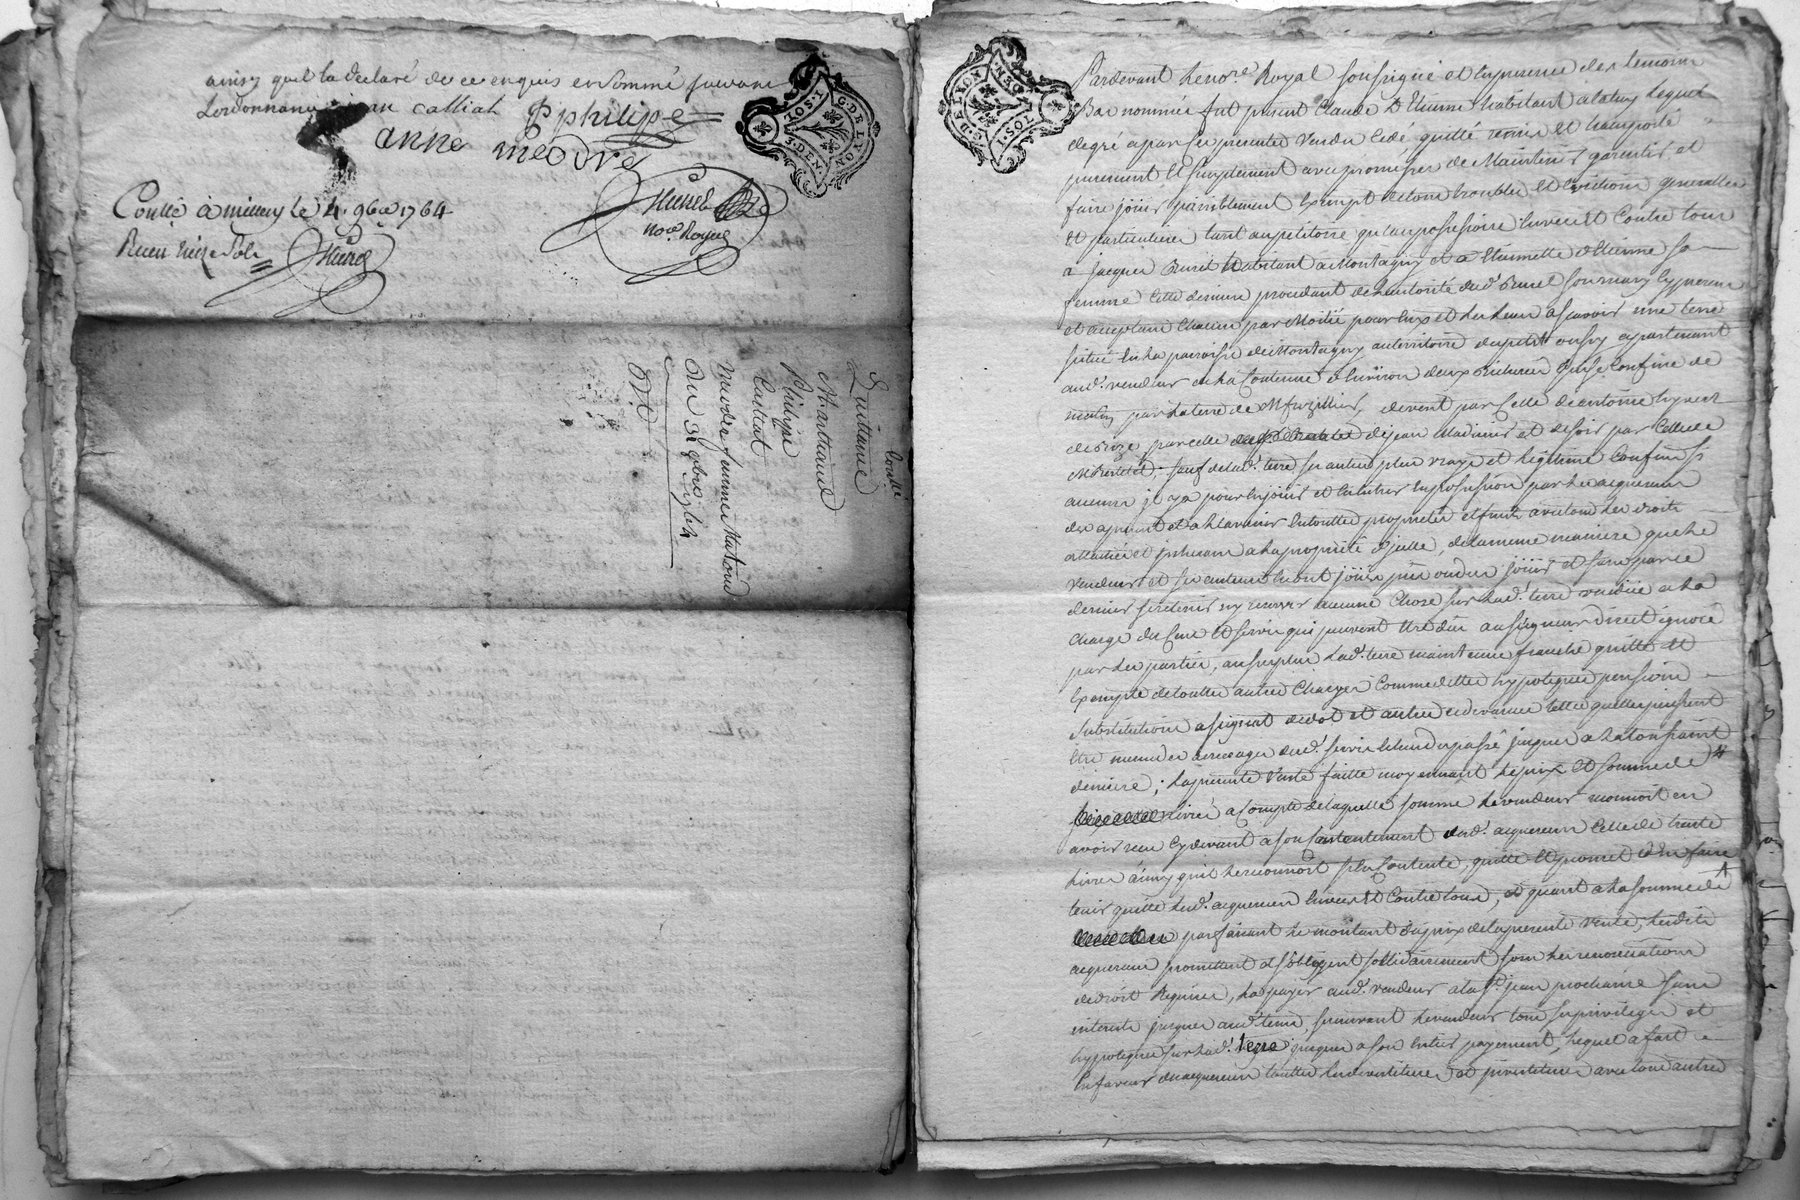 ainsy quil la declaré de ce enquis et sommé suivant
Lordonnance jean calliat Pphilipe
anne meodre
G.DE LYON
1.SOL
5.DEN
Contlé a millery le 4. 9bre 1764
Receu treize sols
Thenet
Thenet
nore Royal
Quittance
Marttaud
Philipe
Calliat
meodre femme Mattaud
Du 3e 9bre 1764
Contlé
G.DE LYON
1.SOL
5.DEN
Pardevant le nore Royal soussigné et en presence des temoins
Bas nommés fut present Claude D'Etienne habitant a lequel
de gré a par ses presentes vendu cedé, quitté remis et transporté
purement et simplement avec promesse de Maintenir garentir et
faire jouir paisiblement Exempt de tous troubles et evictions generalles
et particuliere tant au petitoire qu'au possessoire Envers et Contre tous
a jacques Brunel habitant a Montagny et a Etiennette D'Etienne sa
femme cette derniere procedant de l'autorité dud. Brunel son mary cy present
et acceptant chacun par Moitié pour Eux et les leurs ascavoir une terre
situé en la paroisse de Montagny au territoire du petit appartenant
aud. vendeur de la Contenue d'Environ deux bicherées qui se Confine de
matin par la terre de Mr de vent par Celle de antoine
par celle de jean et de soir par Celle de
sauf de lad. terre ses autres plus vrays et legitimes Confins si
aucuns il y a pour En jouir et Entrer En possession par les acquereurs
des apresent et a l'avenir En toutte proprieté et fruits avec tous les droits
attachés et inherans a la proprieté d'jcelle, de la meme maniere que le
vendeur et ses auteurs En ont joui peu ou du jouir et sans par ce
dernier se retenir ny reserver aucune Chose sur lad. terre vendüe a la
charge du Cens et servis qui peuvent etre dus au seigneur direct ignoré
par les parties, au surplus lad. terre maintenue franche quitte et
Exempte de touttes autres Charges Comme dettes hypoteques pension
substitution assignat de dot et autres redevances telles quelles puissent
etre meme des arrerages dud. servis Echus du passé jusques a la toussaint
derniere; la presente Vente faitte moyennant le prix et somme de
livres a Compte de laquelle somme le vendeur reconnoit en
avoir recu cy devant a son Contentement dud. acquereur Celle de trente
livres ainsy qu'il le reconnoit s'en Contente, quitte et promet d'en faire
tenir quitte led. acquereur Envers et Contre tous, et quant a la somme de
parfaisant le montant du prix de la presente vente, lesdits
acquereurs promettent et s'obligent sollidairement sous les renonciations
de droit Requises, la payer aud. vendeur a la St jean prochaine sans
interets jusques aud. tems, reservant le vendeur tous ses privileges et
hypoteques sur lad. terre jusques a son Entier payement, lequel a fait
En faveur des acquereurs touttes devestitures et jnvestitures avec tous autres